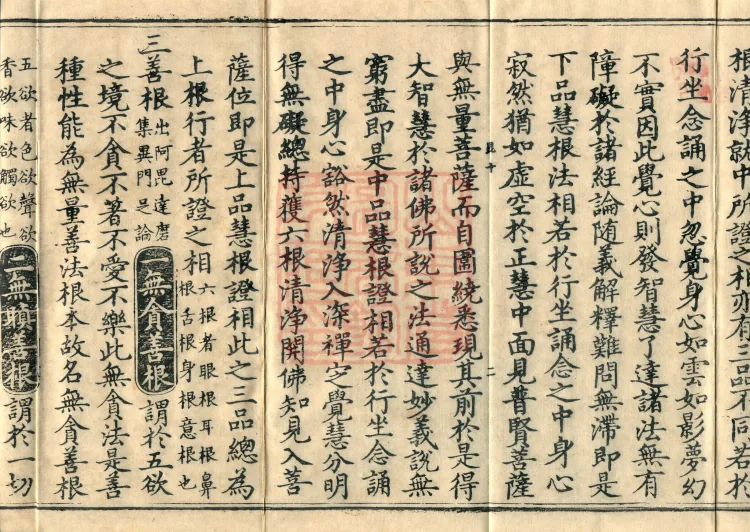 根清淨就中所證之相亦有三品不同若於
行坐念誦之中忽覺身心如雲如影夢幻
不實因此覺心則發智慧了達諸法無有
障礙於諸經論随義解釋難問無滯即是
下品慧根法相若於行坐誦念之中身心
寂然猶如虛空於正慧中面見普賢菩薩
與無量菩薩而自圍繞悉現其前於是得
大智慧於諸佛所說之法通達妙義說無
窮盡即是中品慧根證相若於行坐念誦
之中身心豁然清淨入深禪定覺慧分明
得無礙總持獲六根清淨開佛知見入菩
薩位即是上品慧根證相此之三品總為
上根行者所證之相六根者眼根耳根鼻
根舌根身根意根也
三善根出阿毘達磨
集異門足論
一無貪善根謂於五欲
之境不貪不著不愛不樂此無貪法是善
種性能為無量善法根本故名無貪善根
五欲者色欲聲欲
香欲味欲觸欲也
二無瞋善根謂於一切